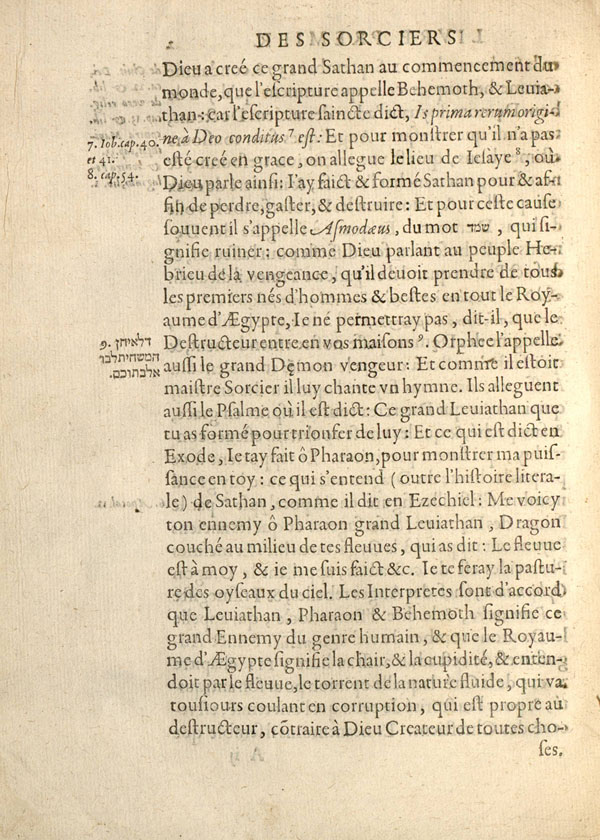 DES SORCIERS
Dieu a creé ce grand Sathan au commencement du
monde, que l'escripture appelle Behemoth, & Leuia-
than: car l'escripture saincte dict, Is prima rerum origi-
ne à Deo conditus 7 est: Et pour monstrer qu'il n'a pas
esté creé en grace, on allegue le lieu de Iesaye 8, où
Dieu parle ainsi: I'ay faict & formé Sathan pour & af-
fin de perdre, gaster, & destruire: Et pour ceste cause
souuent il s'appelle Asmodæus, du mot שמד, qui si-
gnifie ruiner: comme Dieu parlant au peuple He-
brieu de la vengeance, qu'il deuoit prendre de tous
les premiers nés d'hommes & bestes en tout le Roy-
aume d'Ægypte, Ie né permettray pas, dit-il, que le
Destructeur entre en vos maisons 9. Orphee l'appelle
aussi le grand Demon vengeur: Et comme il estoit
maistre Sorcier il luy chante vn hymne. Ils alleguent
aussi le Psalme où il est dict: Ce grand Leuiathan que
tu as formé pour trionfer de luy: Et ce qui est dict en
Exode, Ie tay fait ô Pharaon, pour monstrer ma puis-
sance en toy: ce qui s'entend (outre l'histoire litera-
le) de Sathan, comme il dit en Ezechiel: Me voicy
ton ennemy ô Pharaon grand Leuiathan, Dragon
couché au milieu de tes fleuues, qui as dit: Le fleuue
est à moy, & ie me suis faict &c. Ie te feray la pastu-
re des oyseaux du ciel. Les Interpretes sont d'accord
que Leuiathan, Pharaon & Behemoth signifie ce
grand Ennemy du genre humain, & que le Royau-
me d'Ægypte signifie la chair, & la cupidité, & enten-
doit par le fleuue, le torrent de la nature fluide, qui va
tousiours coulant en corruption, qui est propre au
destructeur, cõtraire à Dieu Createur de toutes cho-
ses.
7. Iob. cap. 40.
et 41.
8. cap. 54.
9. דלאיחן
המשחיתלבו
אלבתוכם.